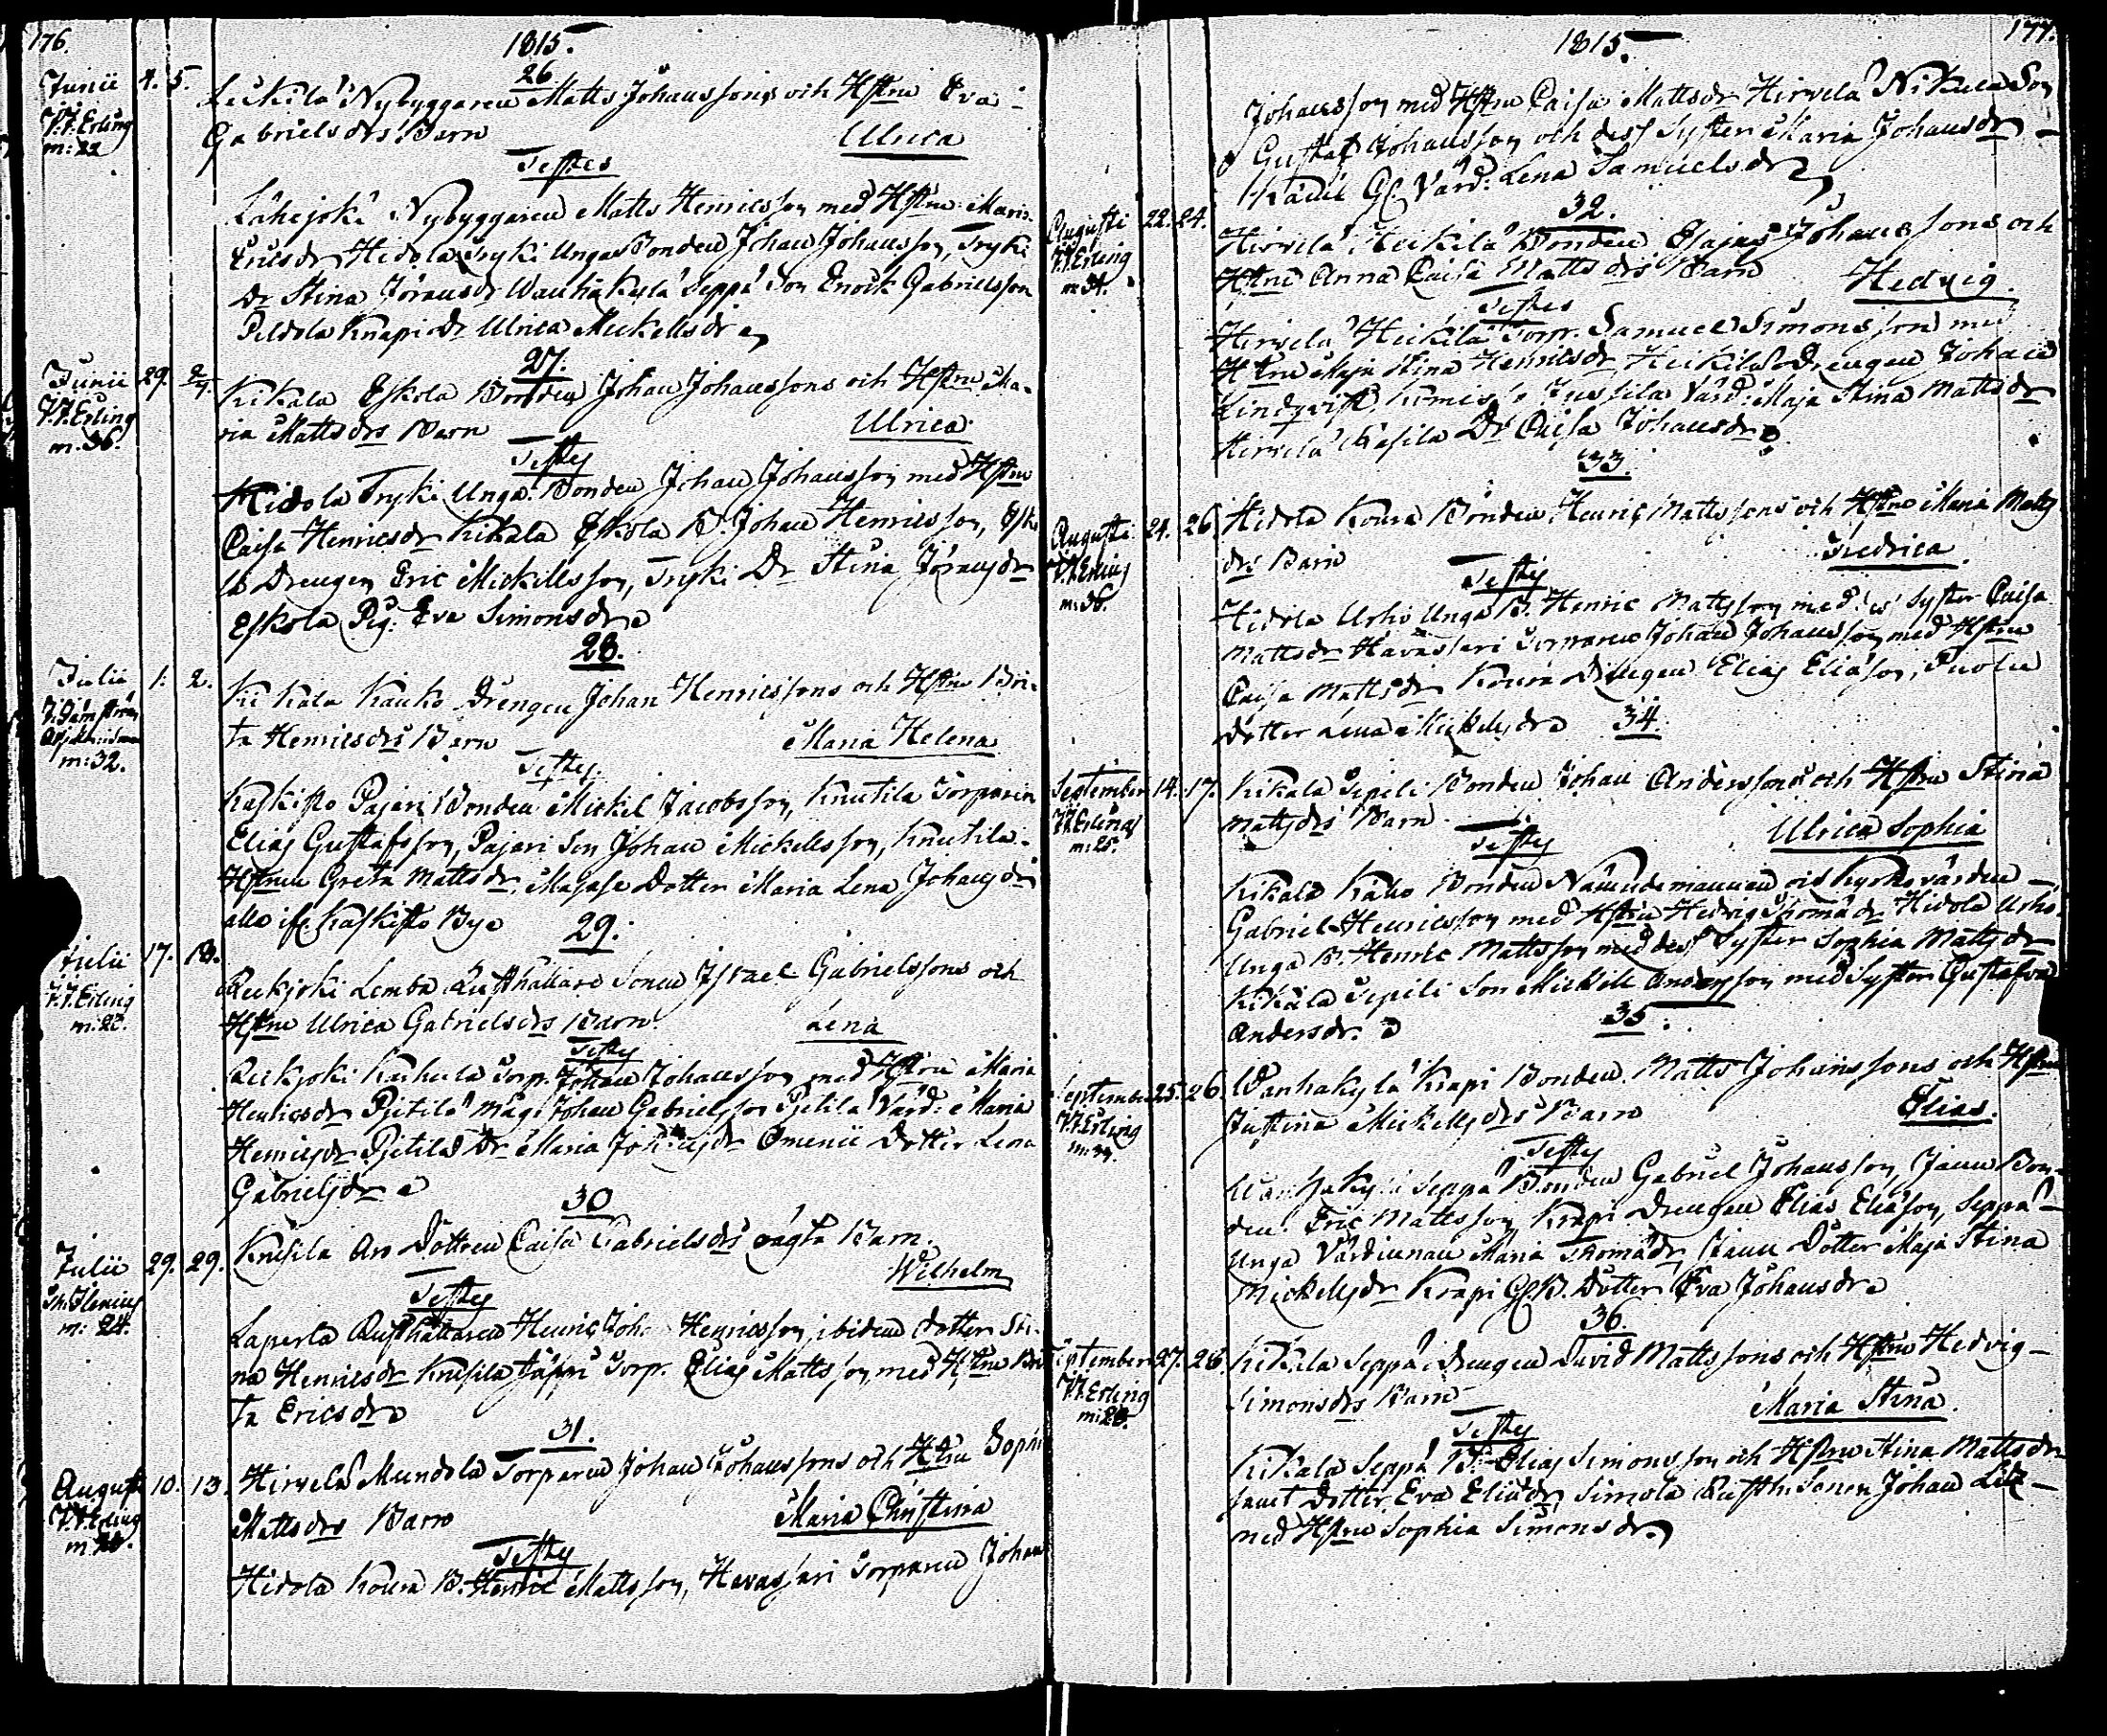 176.
1815.
26
Junii 4. 5.
V.P. Erling
m: 22
Leikilä Nybyggaren Matts Johanssons och Hstru Eva
Gabrielsdrs Barn Ulrica
Testes
Lähejoki Nybyggaren Matts Henricsson med Hstru Maria
Ericsdr Hidola Tryki Unga Bonden Johan Johansson, Tryki
Dr Stina Jöransdr Wanhakylä Seppä Son Enock Gabrielsson
Peldola Knapi Dr Ulrica Mickelsdr
27.
Junii 29. 2/7.
V.P. Erling
m. 36.
Kikala Eskola Bonden Johan Johanssons och Hstru Ma-
ria Mattsdrs Barn Ulrica
Testes
Hidola Tryki Unga Bonden Johan Johansson med Hstru
Caisa Henricsdr Kikala Eskola B. Johan Henricsson,
Drengen Eric Mickelsson, Tryki Dr Stina Jöransdr
Eskola Pig. Eva Simonsdr
28.
Julii 1. 2.
m: 32.
Kikala Kauko Drengen Johan Henricssons och Hstru Bri-
ta Henricsdrs Barn Maria Helena
Testes
Kaskisto Pajari Bonden Mickel Jacobsson, Knutila Torparen
Elias Gustafsson, Pajari Son Johan Mickelsson, Knutila
Hstrun Greta Mattsdr, Dotter Maria Lena Johansdr
alla if. Kaskisto By
29.
Julii 17. 18.
V.P. Erling
m: 28.
Reikjoki Lemba Rusthållare Sonen Israel Gabrielssons och
Hstru Ulrica Gabrielsdrs Barn Lena
Testes
Reikjoki Karhula Torp. Johan Johansson med Hstru Maria
Henricsdr Pjetilä Måg Johan Gabrielsson Pjetilä Värd: Maria
Henricsdr Pjetilä Dr Maria Dotter Lena
Gabrielsdr
30
Julii 29. 29.
m: 24.
Knusila Aro Dottren Caisa Gabrielsdrs oägta Barn.
Wilhelm
Testes
Laperla Rusthållaren Henric Joh. Henricsson, ibidem dotter Sti-
na Henricsdr Knusila Torp. Elias Mattsson, med Hstru Bri-
ta Ericsdr
31.
Augusti 10. 13.
V.P. Erling
Hirvelä Mundola Torparen Johan Johanssons och Hstru Sophi
Mattsdrs Barn Maria Christina
Testes
Hidola Koura B. Henric Mattsson, Havassari Torparen Johan
177.
1815.
Johansson med Hstru Caisa Mattsdr Hirvelä Nikula Son
Gustaf Johansson och dess Syster Maria Johansdr
Gl. Värd: Lena Samuelsdr
32.
Augusti 22. 24.
V.P. Erling
m 34.
Hirvelä Heikilä Bonden Esajas Johanssons och
Hstru Anna Caisa Mattsdrs Barn Hedvig.
Testes
Hirvelä Heikilä Torp. Samuel Simonsson med
Hstru Maja Stina Henricsdr, Heikilä Drengen Johan
Lindqvist, Jussila Värd: Maja Stina Mattsdr
Hirvelä Kasila Dr Caisa Johansdr
33.
Augusti 24. 26.
V.P. Erling
m: 36.
Hidola Koura Bonden Henric Mattssons och Hstru Maria Matts
drs Barn Fredrica
Testes
Hidola Urho Unga B. Henric Mattsson med Syster Caisa
Mattsdr Havassari Torparen Johan Johansson, med Hstru
Caisa Mattsdr Koura Drengen Elias Eliasson,
dotter Lena Mickelsdr
34.
September 14. 17.
V.P. Erling
m: 25.
Kikala Sipili Bonden Johan Anderssons och Hstru Stina
Mattsdrs Barn Ulrica Sophia
Testes
Kikala Bonden Nämndemannen och Kyrkovärden
Gabriel Henricsson med Hstru Hedvig Thomädr Hidola Urho
Unga B. Henric Mattsson med dess Syster Sophia Mattsdr
Kikala Sipili Son Mickel Andersson med Syster Gustafva
Andersdr.
35.
September 25. 26.
V.P. Erling
Wanhakylä Krapi Bonden Matts Johanssons och Hstru
Justina Mickelsdrs Barn Elias.
Testes
Wanhakylä Seppä Bonden Gabriel Johansson, Bon-
den Eric Mattsson, Krapi Drengen Elias Eliasson, Seppä
Unga Värdinnan Maria Thomädr, Dotter Maja Stina
Mickelsdr Krapi Gl. B. Dotter Eva Johansdr
36.
September 27. 28.
V.P. Erling
m: 28.
Kikala Seppä drengen David Mattssons och Hstru Hedvig
Simonsdrs Barn Maria Stina.
Testes
Kikala Seppä B. Elias Simonsson och Hstru Stina Mattsdr
samt Dotter Eva Eliædr, Simola Rusth. Sonen Johan
med Hstru Sophia Simonsdr